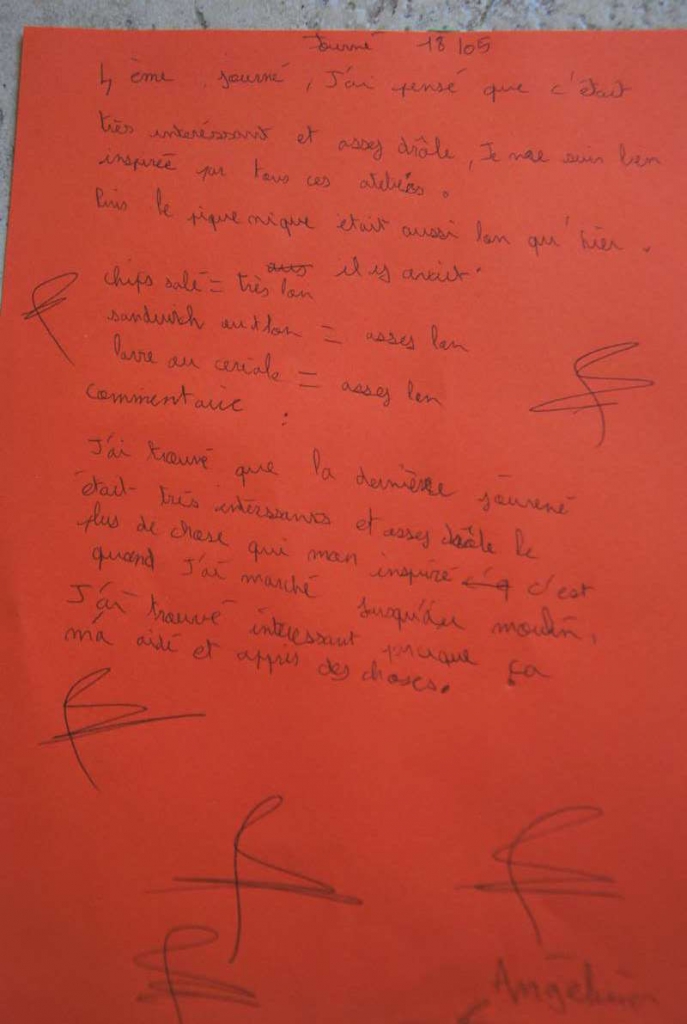 Journé 18/05
4 ème journé, J'ai pensé que c'était
très interéssant et assez drôle, Je me suis bien
inspiréé par tous ces
Puis le pique nique était aussi bon qu'hier.
il y avait :
chips salé = très bon
sandwich au thon = assez bon
barre au cereale = assez bon
commentaire :
J'ai trouvé que la dernière journé
était très et assez drôle le
plus de chose qui m'on inspiré c'est
quand J'ai marché Jusqu'au moulin,
J'ai trouvé interessant parcque ça
m'a aidé et appris des choses.